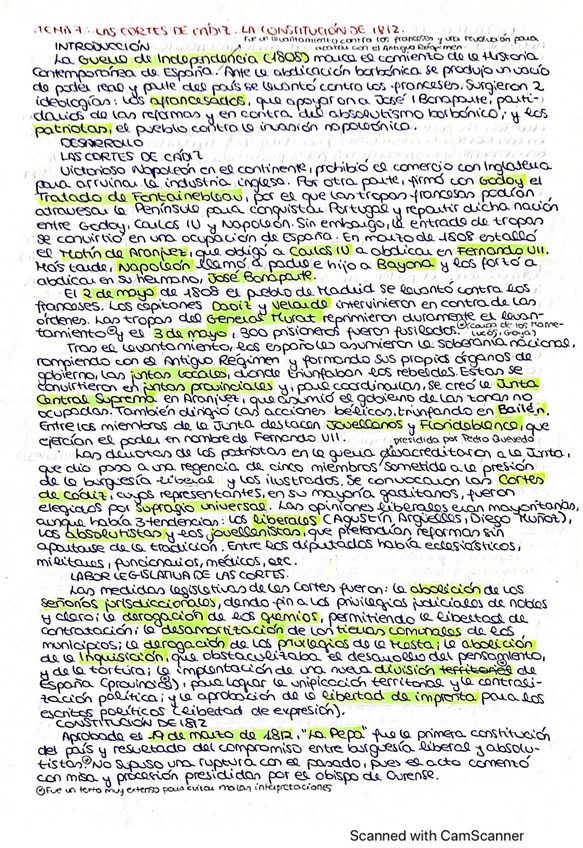 TEMA 7: LAS CORTES DE CÁDIZ. LA CONSTITUCIÓN DE 1812.
Fue un levantamiento contra los franceses y una revolución para
acabar con el Antiguo Régimen.
INTRODUCCIÓN
La Guerra de Independencia (1808) marca el comienzo de la Historia
Contemporánea de España. Ante la abdicación borbónica se produjo un vacío
de poder real y parte del país se levantó contra los franceses. Surgieron 2
ideologías: los afrancesados, que apoyaron a José I Bonaparte, parti-
darios de las reformas y en contra del absolutismo borbónico, y los
patriotas, el pueblo contra la invasión napoleónica.
DESARROLLO
LAS CORTES DE CÁDIZ
Victorioso Napoleón en el continente, prohibió el comercio con Inglaterra
para arruinar la industria inglesa. Por otra parte, firmó con Godoy el
Tratado de Fontainebleau, por el que las tropas francesas podrían
atravesar la Península para conquistar Portugal y repartir dicha nación
entre Godoy, Carlos IV y Napoleón. Sin embargo, la entrada de tropas
se convirtió en una ocupación de España. En marzo de 1808 estalló
el Motín de Aranjuez, que obligó a Carlos IV a abdicar en Fernando VII.
Más tarde, Napoleón llamó a padre e hijo a Bayona y los forzó a
abdicar en su hermano, José Bonaparte.
El 2 de mayo de 1808 el pueblo de Madrid se levantó contra los
franceses. Los capitanes Daoiz y Velarde intervinieron en contra de las
órdenes. Las tropas del General Murat reprimieron duramente el levan-
tamiento y el 3 de mayo, 300 prisioneros fueron fusilados.
(carga de los Mame-
lucos, Goya)
Tras el levantamiento, los españoles asumieron la soberanía nacional,
rompiendo con el Antiguo Régimen y formando sus propios órganos de
gobierno, las juntas locales, donde triunfaban los rebeldes. Estas se
convirtieron en juntas provinciales y, para coordinarlas, se creó la Junta
Central Suprema en Aranjuez, que asumió el gobierno de las zonas no
ocupadas. También dirigió las acciones bélicas, triunfando en Bailén.
Entre los miembros de la Junta destacan Jovellanos y Floridablanca, que
ejercían el poder en nombre de Fernando VII.
presidida por Pedro Quevedo
Las derrotas de los patriotas en la guerra desacreditaron a la Junta,
que dio paso a una regencia de cinco miembros sometida a la presión
de la burguesía liberal y los ilustrados. Se convocaron las Cortes
de Cádiz, cuyos representantes, en su mayoría gaditanos, fueron
elegidos por sufragio universal. Las opiniones liberales eran mayoritarias,
aunque había 3 tendencias: los liberales (Agustín Argüelles, Diego Muñoz),
los absolutistas y los jovellanistas, que pretendían reformas sin
apartarse de la tradición. Entre los diputados había eclesiásticos,
militares, funcionarios, médicos, etc.
LABOR LEGISLATIVA DE LAS CORTES.
Las medidas legislativas de las Cortes fueron: la abolición de los
señoríos jurisdiccionales, dando fin a los privilegios judiciales de nobles
y clero; la derogación de los gremios, permitiendo la libertad de
contratación; la desamortización de las tierras comunales de los
municipios; la derogación de los privilegios de la Mesta; la abolición
de la Inquisición, que obstaculizaba el desarrollo del pensamiento,
y de la tortura; la implantación de una nueva división territorial de
España (provincias), para lograr la unificación territorial y la centrali-
zación política; y la aprobación de la libertad de imprenta para los
escritos políticos (libertad de expresión).
CONSTITUCIÓN DE 1812
Aprobada el 19 de marzo de 1812, "La Pepa" fue la primera constitución
del país y resultado del compromiso entre burguesía liberal y absolu-
tistas. No supuso una ruptura con el pasado, pues el acto comenzó
con misa y procesión presididas por el obispo de Ourense.
Fue un texto muy extenso para evitar malas interpretaciones
Scanned with CamScanner